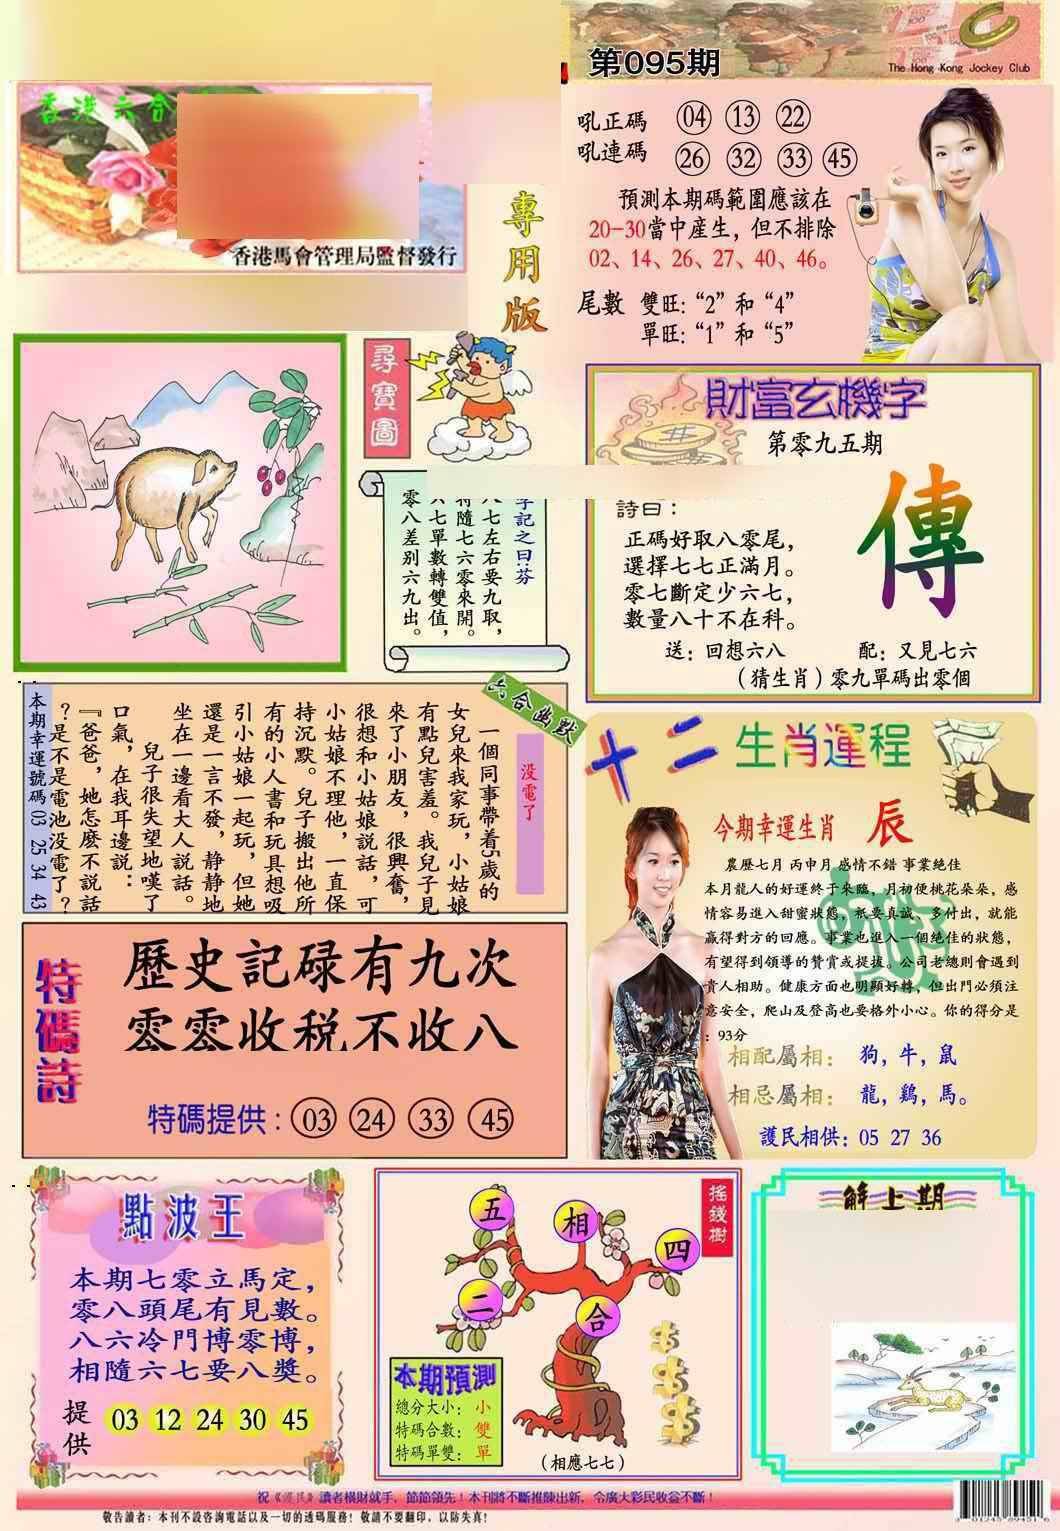 第095期
The Hong Kong Jockey Club
香港六合
香港馬會管理局監督發行
專用版
吼正碼 04 13 22
吼連碼 26 32 33 45
預測本期碼範圍應該在
20-30當中産生，但不排除
02、14、26、27、40、46。
尾數 雙旺:“2”和“4”
單旺:“1”和“5”
尋寶圖
字記之曰:芬
八七左右要九取，
特隨七六零來開。
六七單數轉雙值，
零八差别六九出。
財富玄機字
第零九五期
詩曰：
正碼好取八零尾，
選擇七七正滿月。
零七斷定少六七，
數量八十不在科。
傳
送：回想六八 配：又見七六
（猜生肖）零九單碼出零個
六合幽默
没電了
一個同事帶着5歲的
女兒來我家玩，小姑娘
有點兒害羞。我兒子見
來了小朋友，很興奮，
很想和小姑娘説話，可
小姑娘不理他，一直保
持沉默。兒子搬出他所
有的小人書和玩具想吸
引小姑娘一起玩，但她
還是一言不發，静静地
坐在一邊看大人説話。
兒子很失望地嘆了
口氣，在我耳邊説：
『爸爸，她怎麼不説話
？是不是電池没電了？
本期幸運號碼 03 25 34 43
十二生肖運程
今期幸運生肖 辰
農歷七月 丙申月 感情不錯 事業絶佳
本月龍人的好運終于來臨，月初便桃花朵朵，感
情容易進入甜蜜狀態，祇要真誠、多付出，就能
贏得對方的回應。事業也進入一個絶佳的狀態，
有望得到領導的贊賞或提拔。公司老總則會遇到
貴人相助。健康方面也明顯好轉，但出門必須注
意安全，爬山及登高也要格外小心。你的得分是
：93分
相配屬相：狗，牛，鼠
相忌屬相：龍，鷄，馬。
護民相供：05 27 36
特碼詩
歷史記碌有九次
零零收税不收八
特碼提供：03 24 33 45
點波王
本期七零立馬定，
零八頭尾有見數。
八六冷門博零博，
相隨六七要八獎。
提供 03 12 24 30 45
搖錢樹
五 相 四
二 合
本期預測
總分大小：小
特碼合數：雙
特碼單雙：單
（相應七七）
解上期
祝《護民》讀者橫財就手，節節領先！本刊將不斷推陳出新，令廣大彩民收益不斷！
敬告讀者：本刊不設咨詢電話以及一切的透碼服務！敬請不要翻印，以防失真！